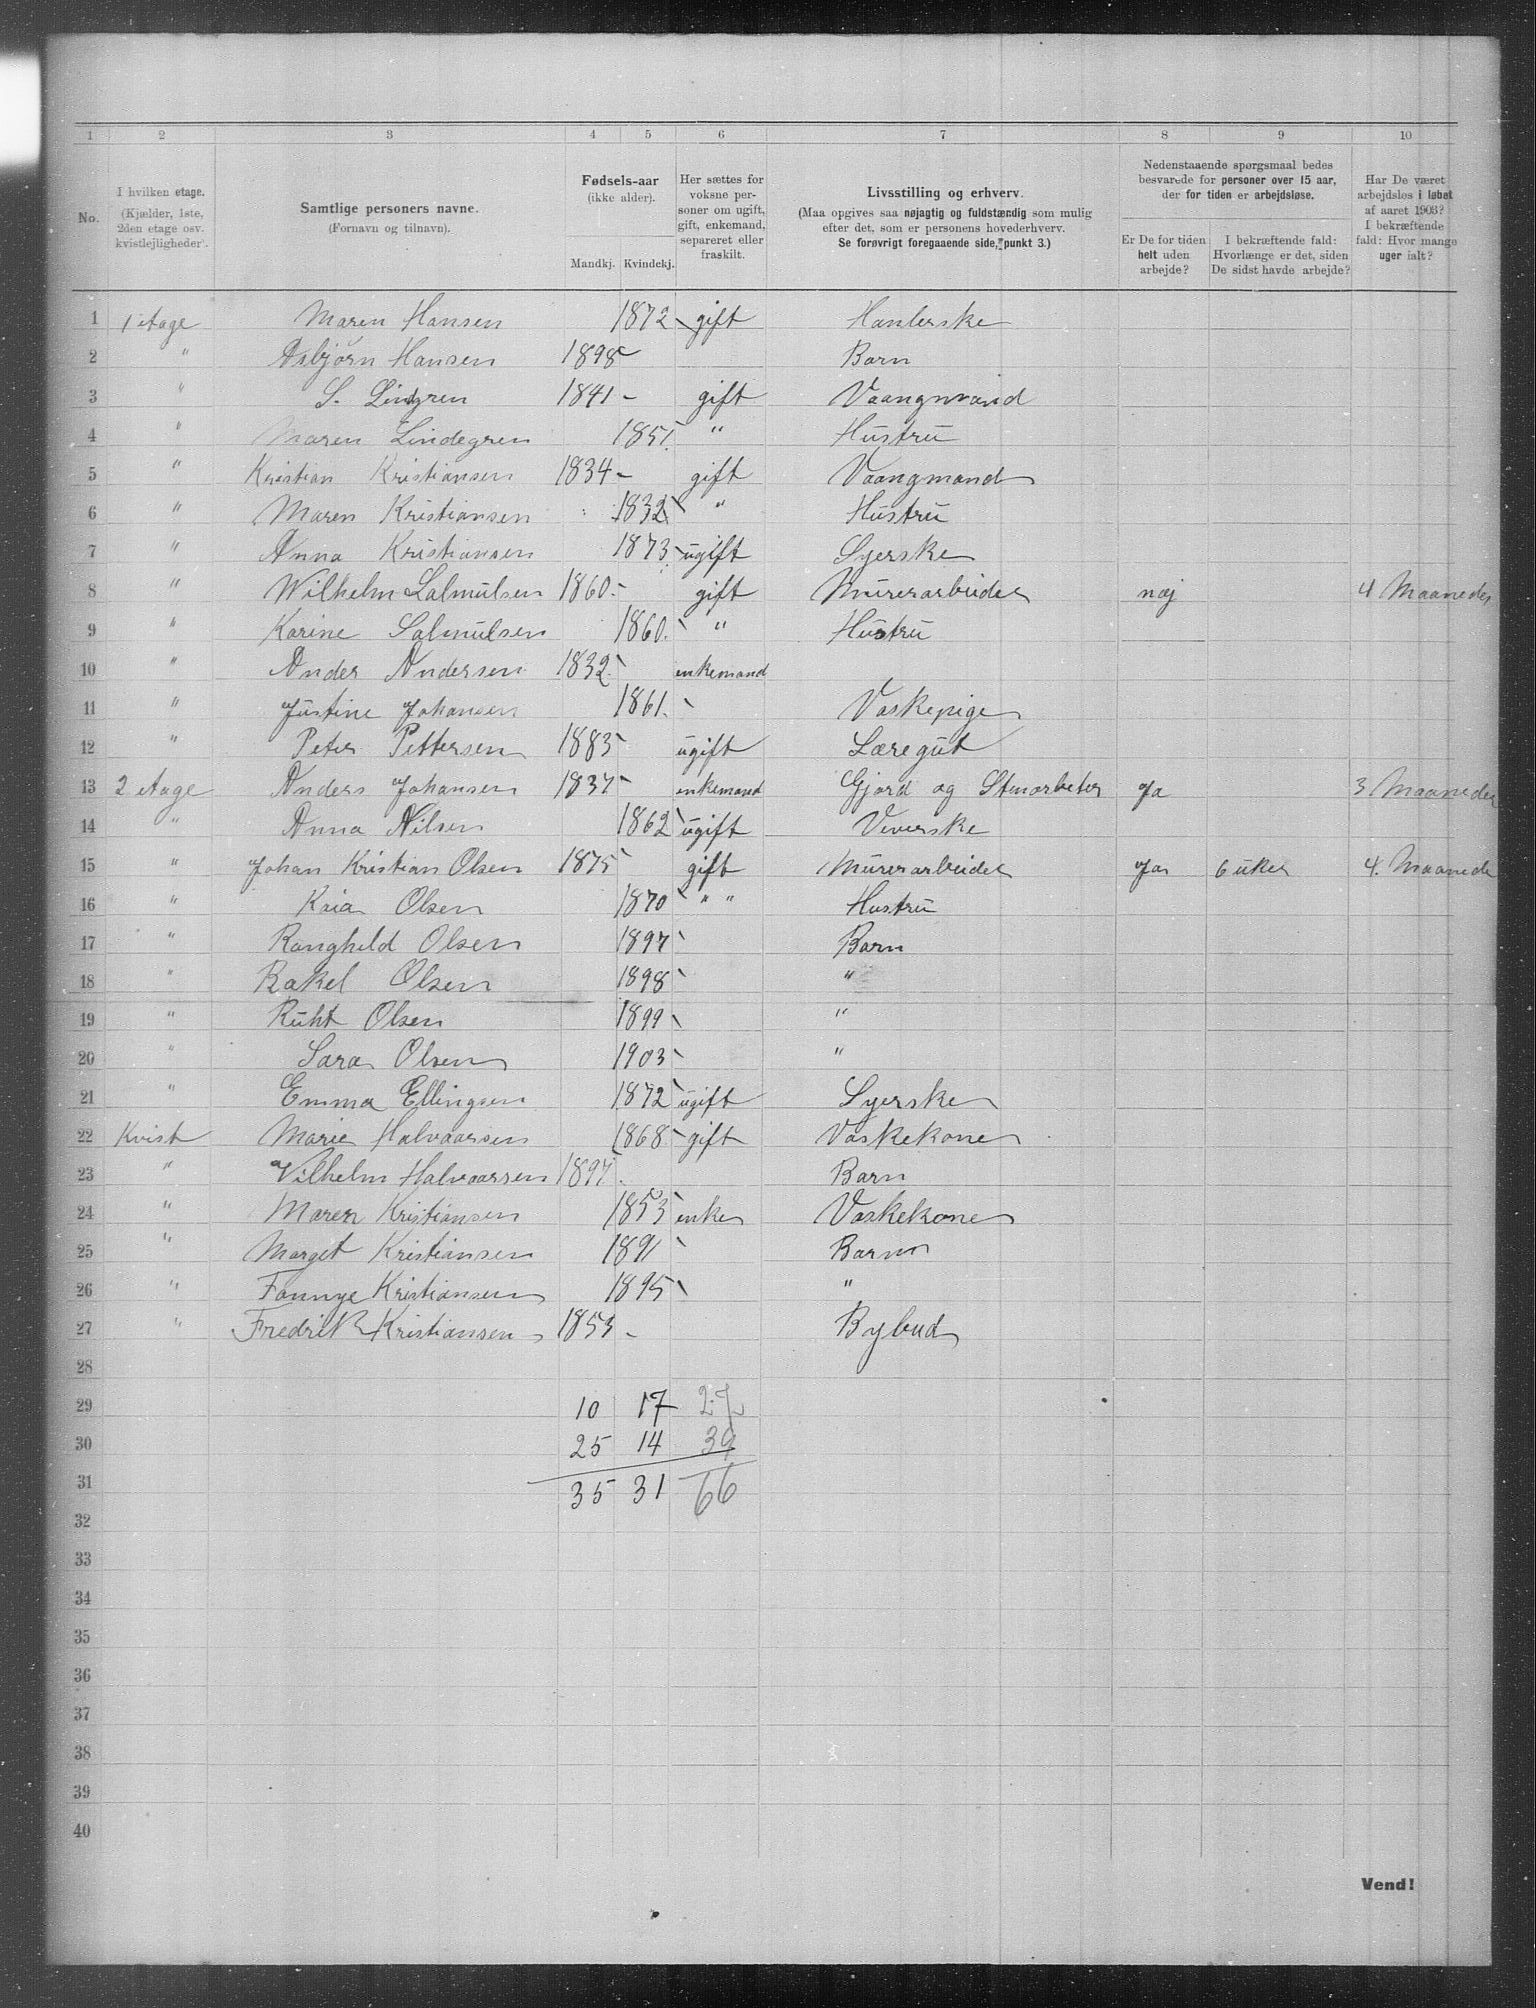 1 2 3 4 5 6 7 8 9 10
No. | I hvilken etage. (Kjælder, 1ste, 2den etage osv. kvistlejligheder). | Samtlige personers navne. (Fornavn og tilnavn). | Fødsels-aar (ikke alder). Mandkj. Kvindekj. | Her sættes for voksne personer om ugift, gift, enkemand, separeret eller fraskilt. | Livsstilling og erhverv. (Maa opgives saa nøjagtig og fuldstændig som mulig efter det, som er personens hovederhverv. Se forøvrigt foregaaende side, punkt 3.) | Nedenstaaende spørgsmaal bedes besvarede for personer over 15 aar, der for tiden er arbejdsløse. Er De for tiden helt uden arbejde? | I bekræftende fald: Hvorlænge er det, siden De sidst havde arbejde? | Har De været arbejdsløs i løbet af aaret 1903? I bekræftende fald: Hvor mange uger ialt?
1 1 etage Maren Hansen 1872 gift Hanlerske
2 " Asbjørn Hansen 1898 Barn
3 " S. Lindgren 1841 - gift Vaangmand
4 " Maren Lindegren 1851. " Hustru
5 " Kristian Kristiansen 1834 - gift Vaangmand
6 " Maren Kristiansen 1832 " Hustru
7 " Anna Kristiansen 1873 ugift Syerske
8 " Wilhelm Salmulsen 1860 - gift Murerarbeider næj 4 Maaneder
9 " Karine Salmulsen 1860. " Hustru
10 " Ander Andersen 1832. enkemand
11 " Justine Johansen 1861. Vaskepige
12 " Peter Pettersen 1883 ugift Læregut
13 2 etage Anders Johansen 1837 enkemand Gjord og Stenarbeter Ja 3 Maaneder
14 " Anna Nilsen 1862 ugift Veverske
15 " Johan Kristian Olsen 1875 gift Murerarbeider Ja 6 uker 4. Maaneder
16 " Kaia Olsen 1870 " " Hustru
17 " Ranghild Olsen 1897 Barn
18 " Rakel Olsen 1898 "
19 " Ruht Olsen 1899 "
20 " Sara Olsen 1903 "
21 " Emma Ellingsen 1872 ugift Syerske
22 Kvist Marie Halvaarsen 1868. gift Vaskekone
23 " Vilhelm Halvaarsen 1897. Barn
24 " Maren Kristiansen 1853 enke Vaskekone
25 " Marget Kristiansen 1891 Barn
26 " Fannye Kristiansen 1895 "
27 " Fredrik Kristiansen 1853 - Bybud
28
29 10 17 27
30 25 14 39
31 35 31 66
32
33
34
35
36
37
38
39
40
Vend!